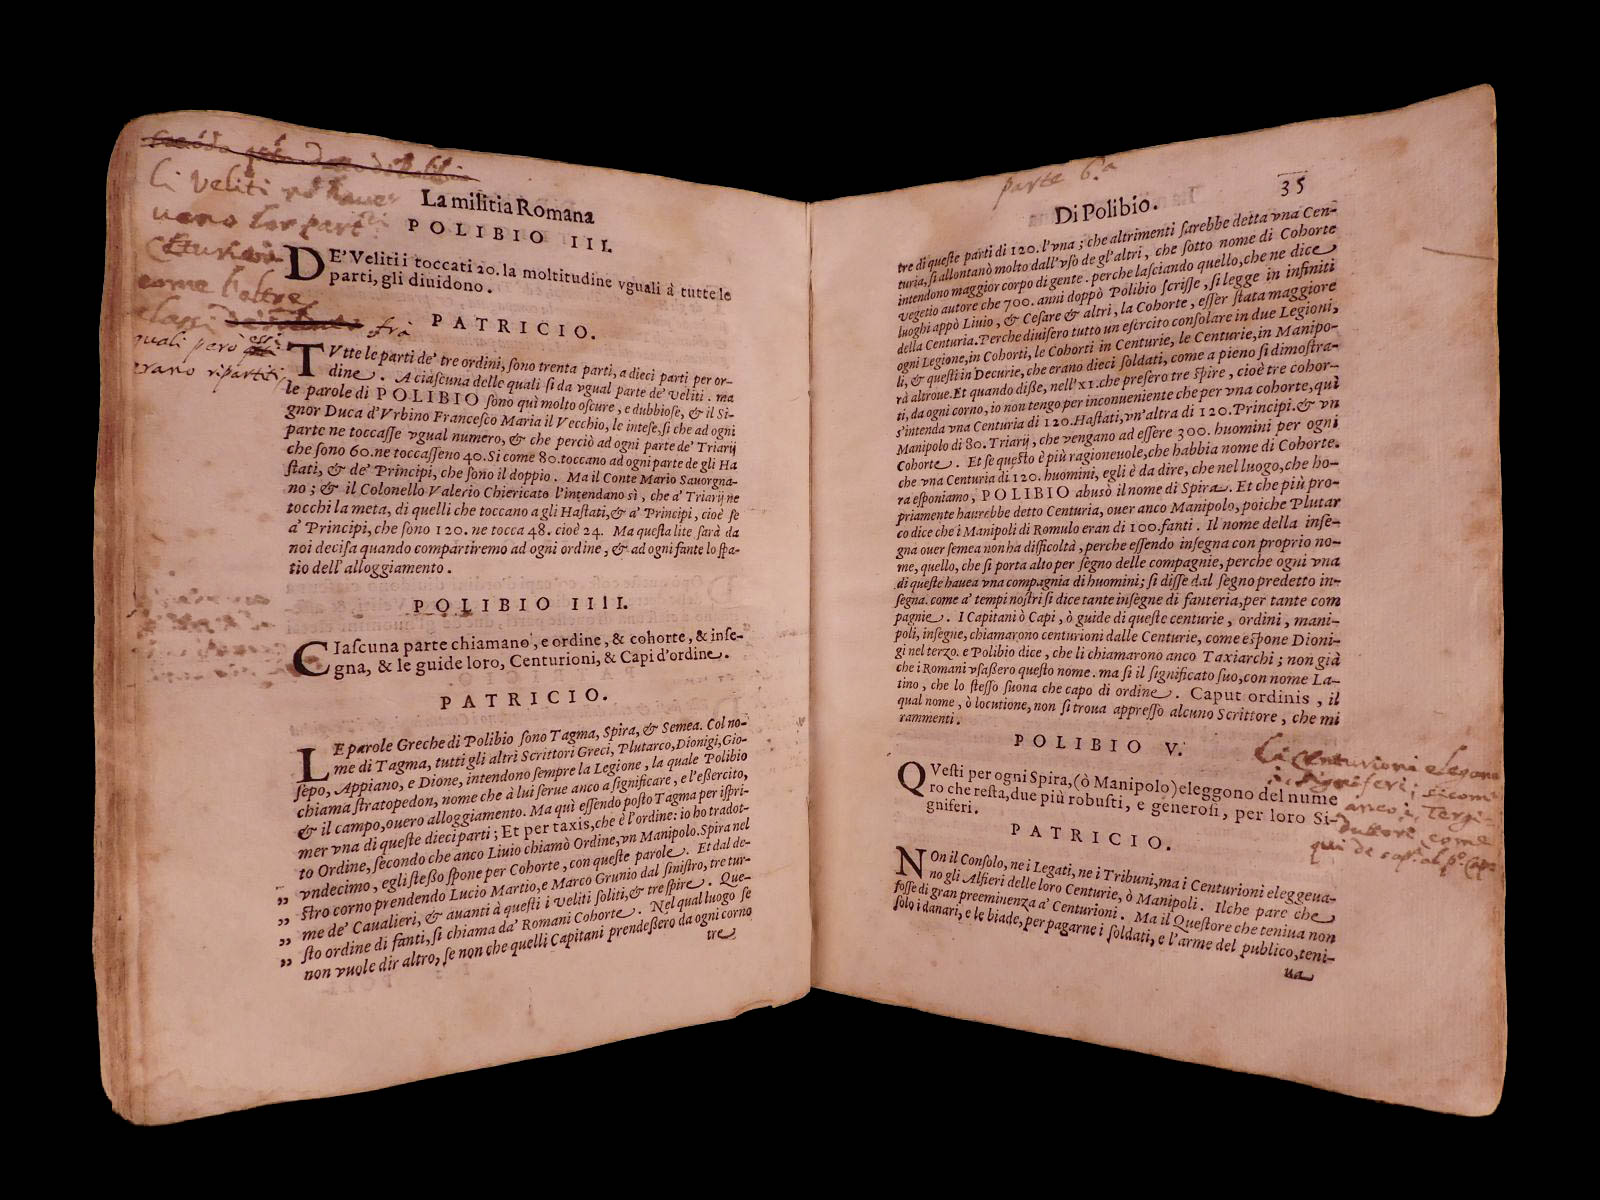 li Veliti nō haue-
uano lor parti
Centurioni
come l'altre
classi frà
quali però essi
erano ripartiti
La militia Romana
POLIBIO III.
DE' Veliti i toccati 20. la moltitudine vguali à tutte le
parti, gli diuidono.
PATRICIO.
TVtte le parti de' tre ordini, sono trenta parti, a dieci parti per or-
dine. A ciascuna delle quali si da vgual parte de' Veliti. ma
le parole di POLIBIO sono quì molto oscure, e dubbiose, & il Si-
gnor Duca d'Vrbino Francesco Maria il Vecchio, le intese, si che ad ogni
parte ne toccasse vgual numero, & che perciò ad ogni parte de' Triarij
che sono 60. ne toccasseno 40. Si come 80. toccano ad ogni parte de gli Ha
stati, & de' Principi, che sono il doppio. Ma il Conte Mario Sauorgna-
no; & il Colonello Valerio Chiericato l'intendano sì, che a' Triarij ne
tocchi la meta, di quelli che toccano a gli Hastati, & a' Principi, cioè se
a' Principi, che sono 120. ne tocca 48. cioè 24. Ma questa lite sarà da
noi decisa quando compartiremo ad ogni ordine, & ad ogni fante lo spa-
tio dell'alloggiamento.
POLIBIO IIII.
CIascuna parte chiamano, e ordine, & cohorte, & inse-
gna, & le guide loro, Centurioni, & Capi d'ordine.
PATRICIO.
LE parole Greche di Polibio sono Tagma, Spira, & Semea. Col no-
me di Tagma, tutti gli altri Scrittori Greci, Plutarco, Dionigi, Gio-
sepo, Appiano, e Dione, intendono sempre la Legione, la quale Polibio
chiama stratopedon, nome che à lui serue anco a significare, e l'eßercito,
& il campo, ouero alloggiamento. Ma quì essendo posto Tagma per ispri-
mer vna di queste dieci parti; Et per taxis, che è l'ordine: io ho tradot-
to Ordine, secondo che anco Liuio chiamò Ordine, vn Manipolo. Spira nel
vndecimo, egli steßo spone per Cohorte, con queste parole. Et dal de-
,, stro corno prendendo Lucio Martio, e Marco Grunio dal sinistro, tre tur-
,, me de' Caualieri, & auanti à questi i Veliti soliti, & tre spire. Que-
,, sto ordine di fanti, si chiama da' Romani Cohorte. Nel qual luogo se
,, non vuole dir altro, se non che quelli Capitani prendeßero da ogni corno
tre
parte 6.a
Di Polibio.
35
tre di queste parti di 120. l'vna; che altrimenti sarebbe detta vna Cen-
turia, si allontanò molto dall'vso de gl'altri, che sotto nome di Cohorte
intendono maggior corpo di gente. perche lasciando quello, che ne dice
vegetio autore che 700. anni doppò Polibio scrisse, si legge in infiniti
luoghi appò Liuio, & Cesare & altri, la Cohorte, esser stata maggiore
della Centuria. Perche diuisero tutto un esercito consolare in due Legioni,
ogni Legione, in Cohorti, le Cohorti in Centurie, le Centurie, in Manipo-
li, & questi in Decurie, che erano dieci soldati, come a pieno si dimostra-
rà altroue. Et quando diße, nell'XI. che presero tre spire, cioè tre cohor-
ti, da ogni corno, io non tengo per inconueniente che per vna cohorte, quì
s'intenda vna Centuria di 120. Hastati, vn'altra di 120. Principi. & vn
Manipolo di 80. Triarij, che vengano ad essere 300. huomini per ogni
Cohorte. Et se questo è più ragioneuole, che habbia nome di Cohorte,
che vna Centuria di 120. huomini, egli è da dire, che nel luogo, che ho-
ra esponiamo, POLIBIO abusò il nome di Spira. Et che più pro-
priamente haurebbe detto Centuria, ouer anco Manipolo, poiche Plutar
co dice che i Manipoli di Romulo eran di 100. fanti. Il nome della inse-
gna ouer semea non ha difficoltà, perche essendo insegna con proprio no-
me, quello, che si porta alto per segno delle compagnie, perche ogni vna
di queste hauea vna compagnia di huomini; si disse dal segno predetto in-
segna. come a' tempi nostri si dice tante insegne di fanteria, per tante com
pagnie. I Capitani ò Capi, ò guide di queste centurie, ordini, mani-
poli, insegne, chiamarono centurioni dalle Centurie, come espone Dioni-
gi nel terzo. e Polibio dice, che li chiamarono anco Taxiarchi; non già
che i Romani vsaßero questo nome. ma si il significato suo, con nome La-
tino, che lo stesso suona che capo di ordine. Caput ordinis, il
qual nome, ò locutione, non si troua appresso alcuno Scrittore, che mi
rammenti.
POLIBIO V.
QVesti per ogni Spira, (ò Manipolo) eleggono del nume
ro che resta, due più robusti, e generosi, per loro Si-
gniferi.
li Centurioni elegono
i Signiferi; sicome
anco i Tergi-
duttori come
PATRICIO.
NOn il Consolo, ne i Legati, ne i Tribuni, ma i Centurioni eleggeua-
no gli Alfieri delle loro Centurie, ò Manipoli. Ilche pare che
fosse di gran preeminenza a' Centurioni. Ma il Questore che teniua non
solo i danari, e le biade, per pagarne i soldati, e l'arme del publico, teni-
ua